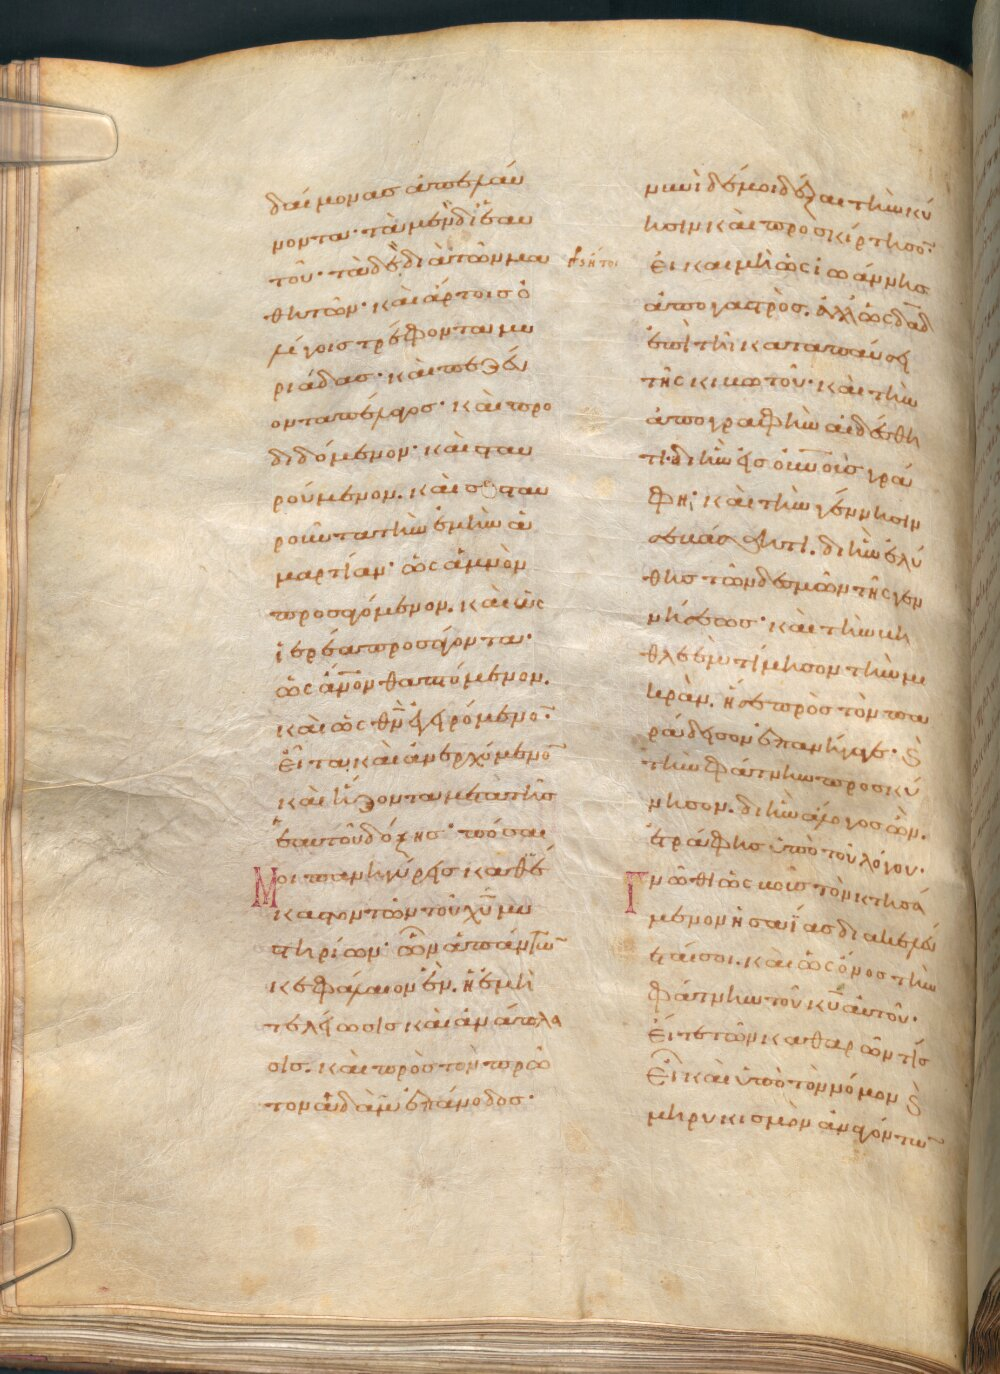 δαίμονας ἀπελαύ
νοντα· τὰ μὲν δι' ἑαυ
τοῦ· τὰ δὲ διὰ τῶν μα
θητῶν· καὶ ἄρτοις ὀ
λίγοις τρέφοντα μυ
ριάδας· καὶ πεζεύ
οντα πέλαγος· καὶ προ
διδόμενον· καὶ σταυ
ρούμενον. καὶ συσταυ
ροῦντα τὴν ἐμὴν ἁ
μαρτίαν· ὡς ἀμνὸν
προσαγόμενον. καὶ ὡς
ἱερέα προσάγοντα·
ὡς ἄνον θαπτόμενον.
καὶ ὡς θν ἐγειρόμενον·
εἶτα καὶ ἀνερχόμενον
καὶ ἥξοντα μετὰ τῆς
ἑαυτοῦ δόξης· πόσαι
Μοι πανηγύρεις καθ' ἕ
καστον τῶν τοῦ χυ μυ
στηρίων· ὧν ἁπάντων
κεφάλαιον ἕν. ἡ ἐμὴ
τελείωσις καὶ ἀνάπλα
σις. καὶ πρὸς τὸν πρῶ
τον ἀδὰμ ἐπάνοδος·
νυνὶ δέ μοι δέξαι τὴν κύ
ησιν καὶ προσκίρτησον·
εἰ καὶ μὴ ὡς ἰωάννης
ἀπὸ γαστρός. ἀλλ' ὡς δαδ
ἐπὶ τῆι καταπαύσει
τῆς κιβωτοῦ· καὶ τὴν
ἀπογραφὴν αἰδέσθη
τι· δι' ἣν εἰς οὐνοὺς γρά
φηι· καὶ τὴν γέννησιν
σεβάσθητι. δι' ἣν ἐλύ
θης τῶν δεσμῶν τῆς γεν
νήσεως· καὶ τὴν βη
θλεὲμ τίμησον τὴν μι
κράν. ἥ σε πρὸς τὸν πα
ράδεισον ἐπανήγαγε· ϗ
τὴν φάτνην προσκύ
νησον. δι' ἣν ἄλογος ὤν.
ἐτράφης ὑπὸ τοῦ λόγου·
Γνῶθι ὡς βοῦς τὸν κτησά
μενον ἡσαΐας διακελεύ
εταί σοι. καὶ ὡς ὄνος τὴν
φάτνην τοῦ κυ αὐτοῦ·
εἴτε τῶν καθαρῶν τίς
εἶ καὶ ὑπὸ τὸν νόμον ϗ
μηρυκισμὸν ἀναγόντων